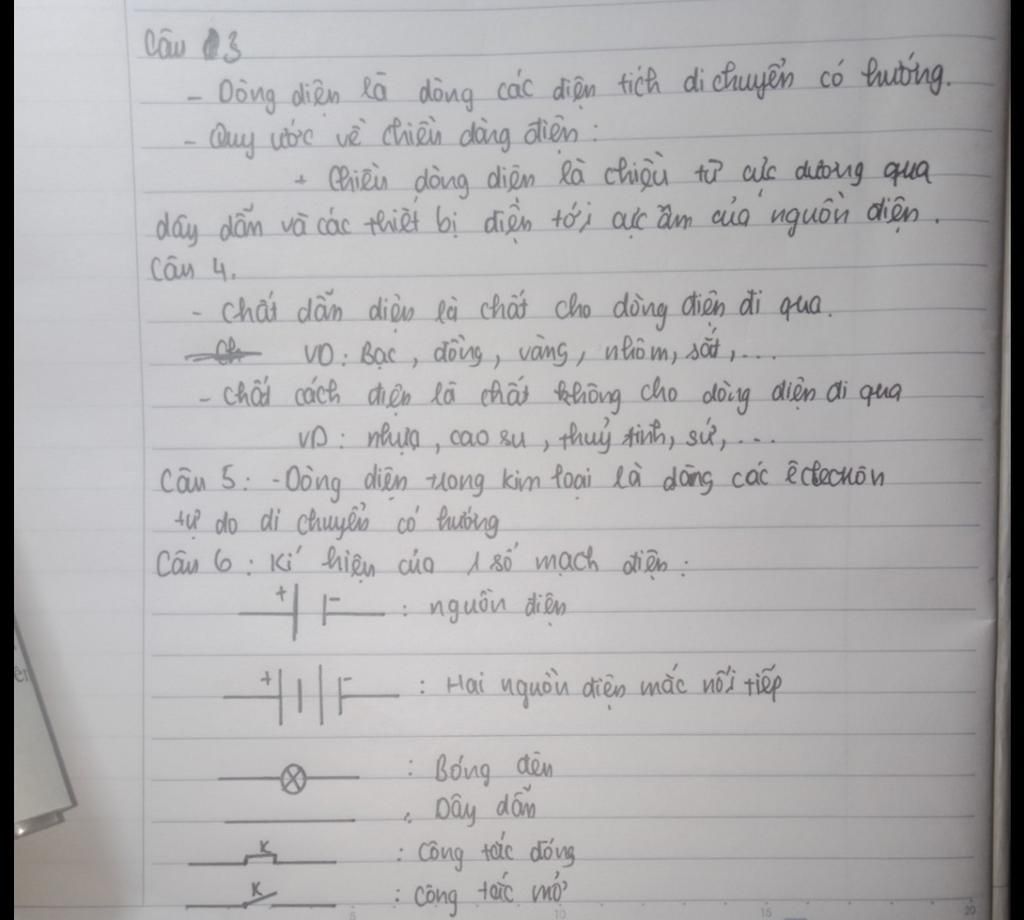 Câu 3
- Dòng điện là dòng các điện tích di chuyển có hướng.
- Quy ước về chiều dòng điện:
+ Chiều dòng điện là chiều từ cực dương qua
dây dẫn và các thiết bị điện tới cực âm của nguồn điện.
Câu 4.
- Chất dẫn điện là chất cho dòng điện đi qua.
VD: Bạc, đồng, vàng, nhôm, sắt,...
- Chất cách điện là chất không cho dòng điện đi qua
VD: nhựa, cao su, thuỷ tinh, sứ,...
Câu 5: - Dòng điện trong kim loại là dòng các êlectrôn
tự do di chuyển có hướng
Câu 6: Kí hiệu của 1 số mạch điện:
+ - : nguồn điện
+ - : Hai nguồn điện mắc nối tiếp
: Bóng đèn
: Dây dẫn
K : Công tắc đóng
K : Công tắc mở
5 10 15 20